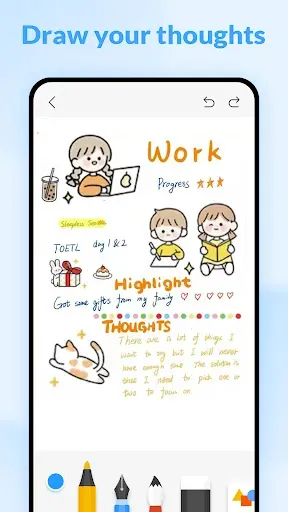 Draw your thoughts
Work
Progress
TOETL day 1 & 2
Highlight
Got some gifts from my family
THOUGHTS
There are a lot of things I
want to try but I will never
have enough time. The solution is
that I need to pick one or
two to focus on